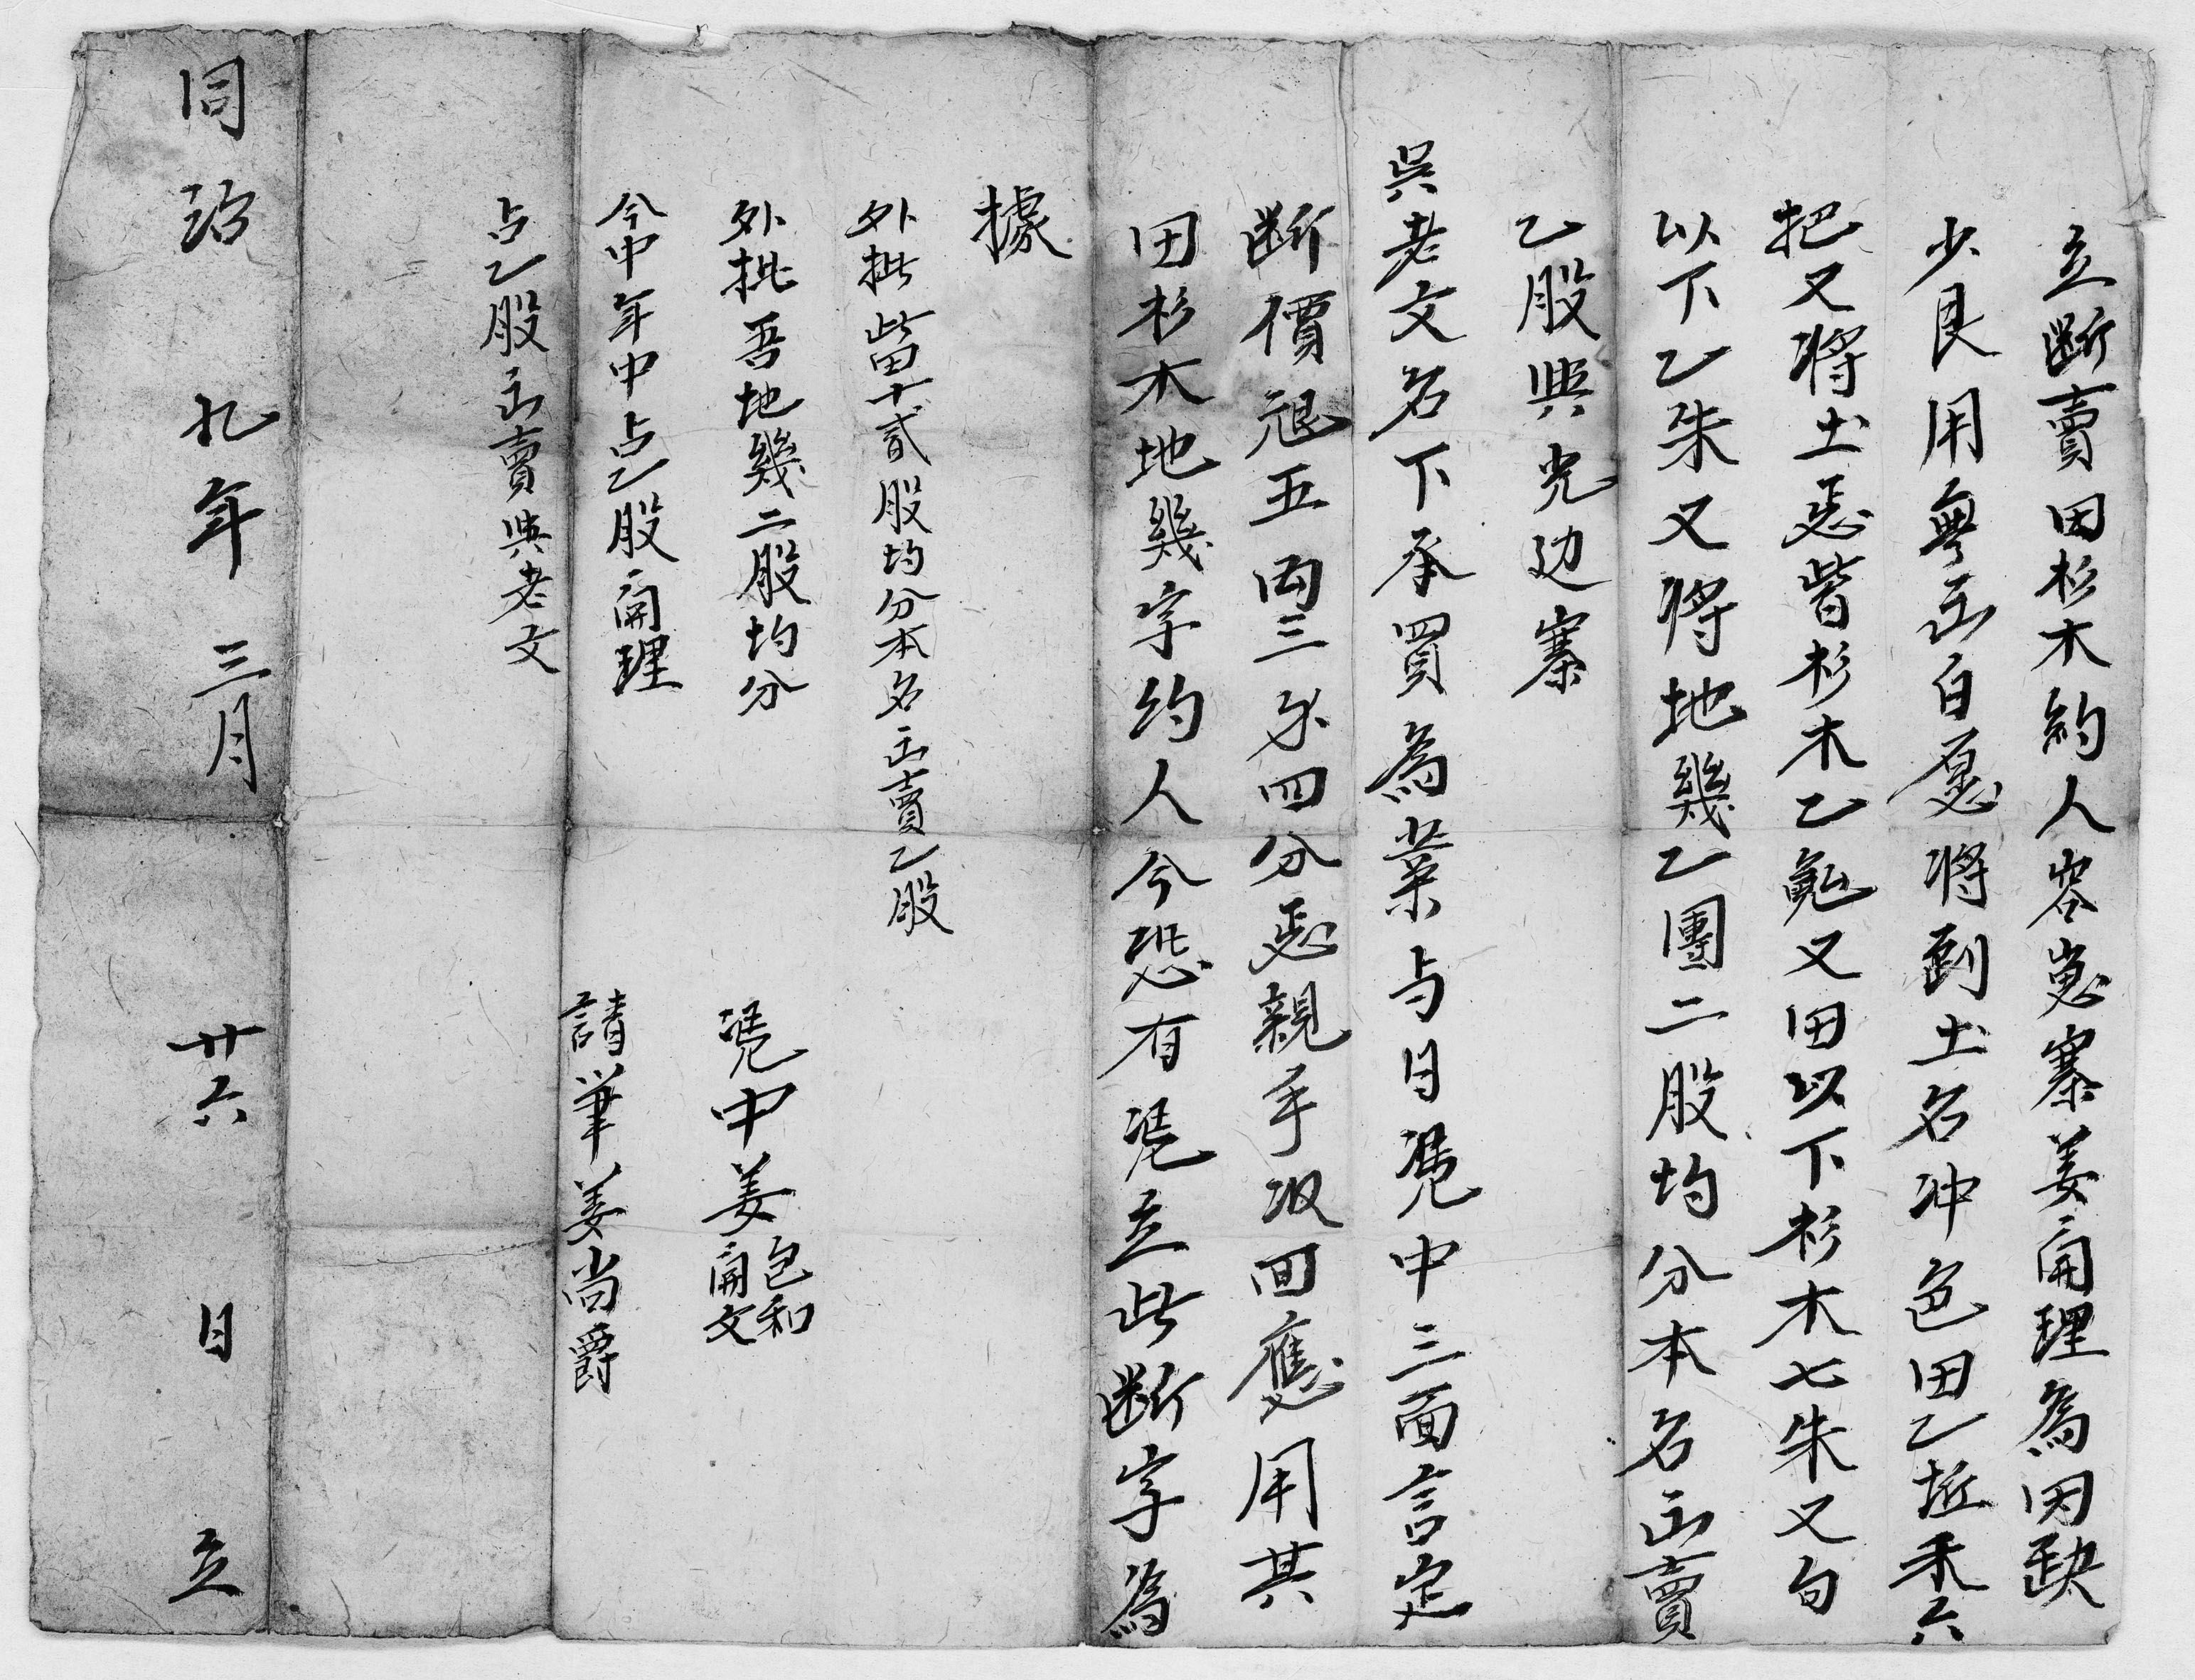 立断賣田杉木約人容嵬寨姜開理為因缺
少艮用無出自愿將到土名冲色田乙坵禾六
把又將土悪皆杉木乙乿又田以下杉木七朱又勾
以下乙朱又將地幾乙團二股均分本名出賣
乙股與光边寨
吳老文名下承買為業与日凴中三面言定
断價艮五両三分四分悪親手収回應用其
田杉木地幾字約人今恐有凴立此断字為
據
外批此田十貳股均分本名出賣乙股
外批吾地幾二股均分
今中年中占乙股開理
占乙股出賣與老文
凴中姜包和
開文
請筆姜尚爵
同治九年三月廿六日立